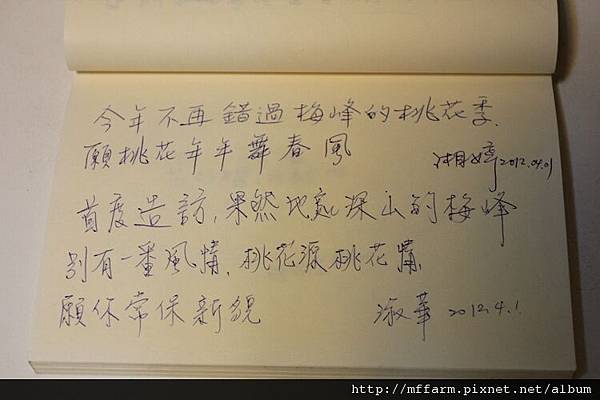 今年不再錯過梅峰的桃花季.
願桃花年年舞春風
湘婷 2012.04.01
首度造訪,果然地處深山的梅峰
別有一番風情,桃花源桃花情,
願你常保新貌
淑華 2012.4.1
http://mffarm.pixnet.net/album